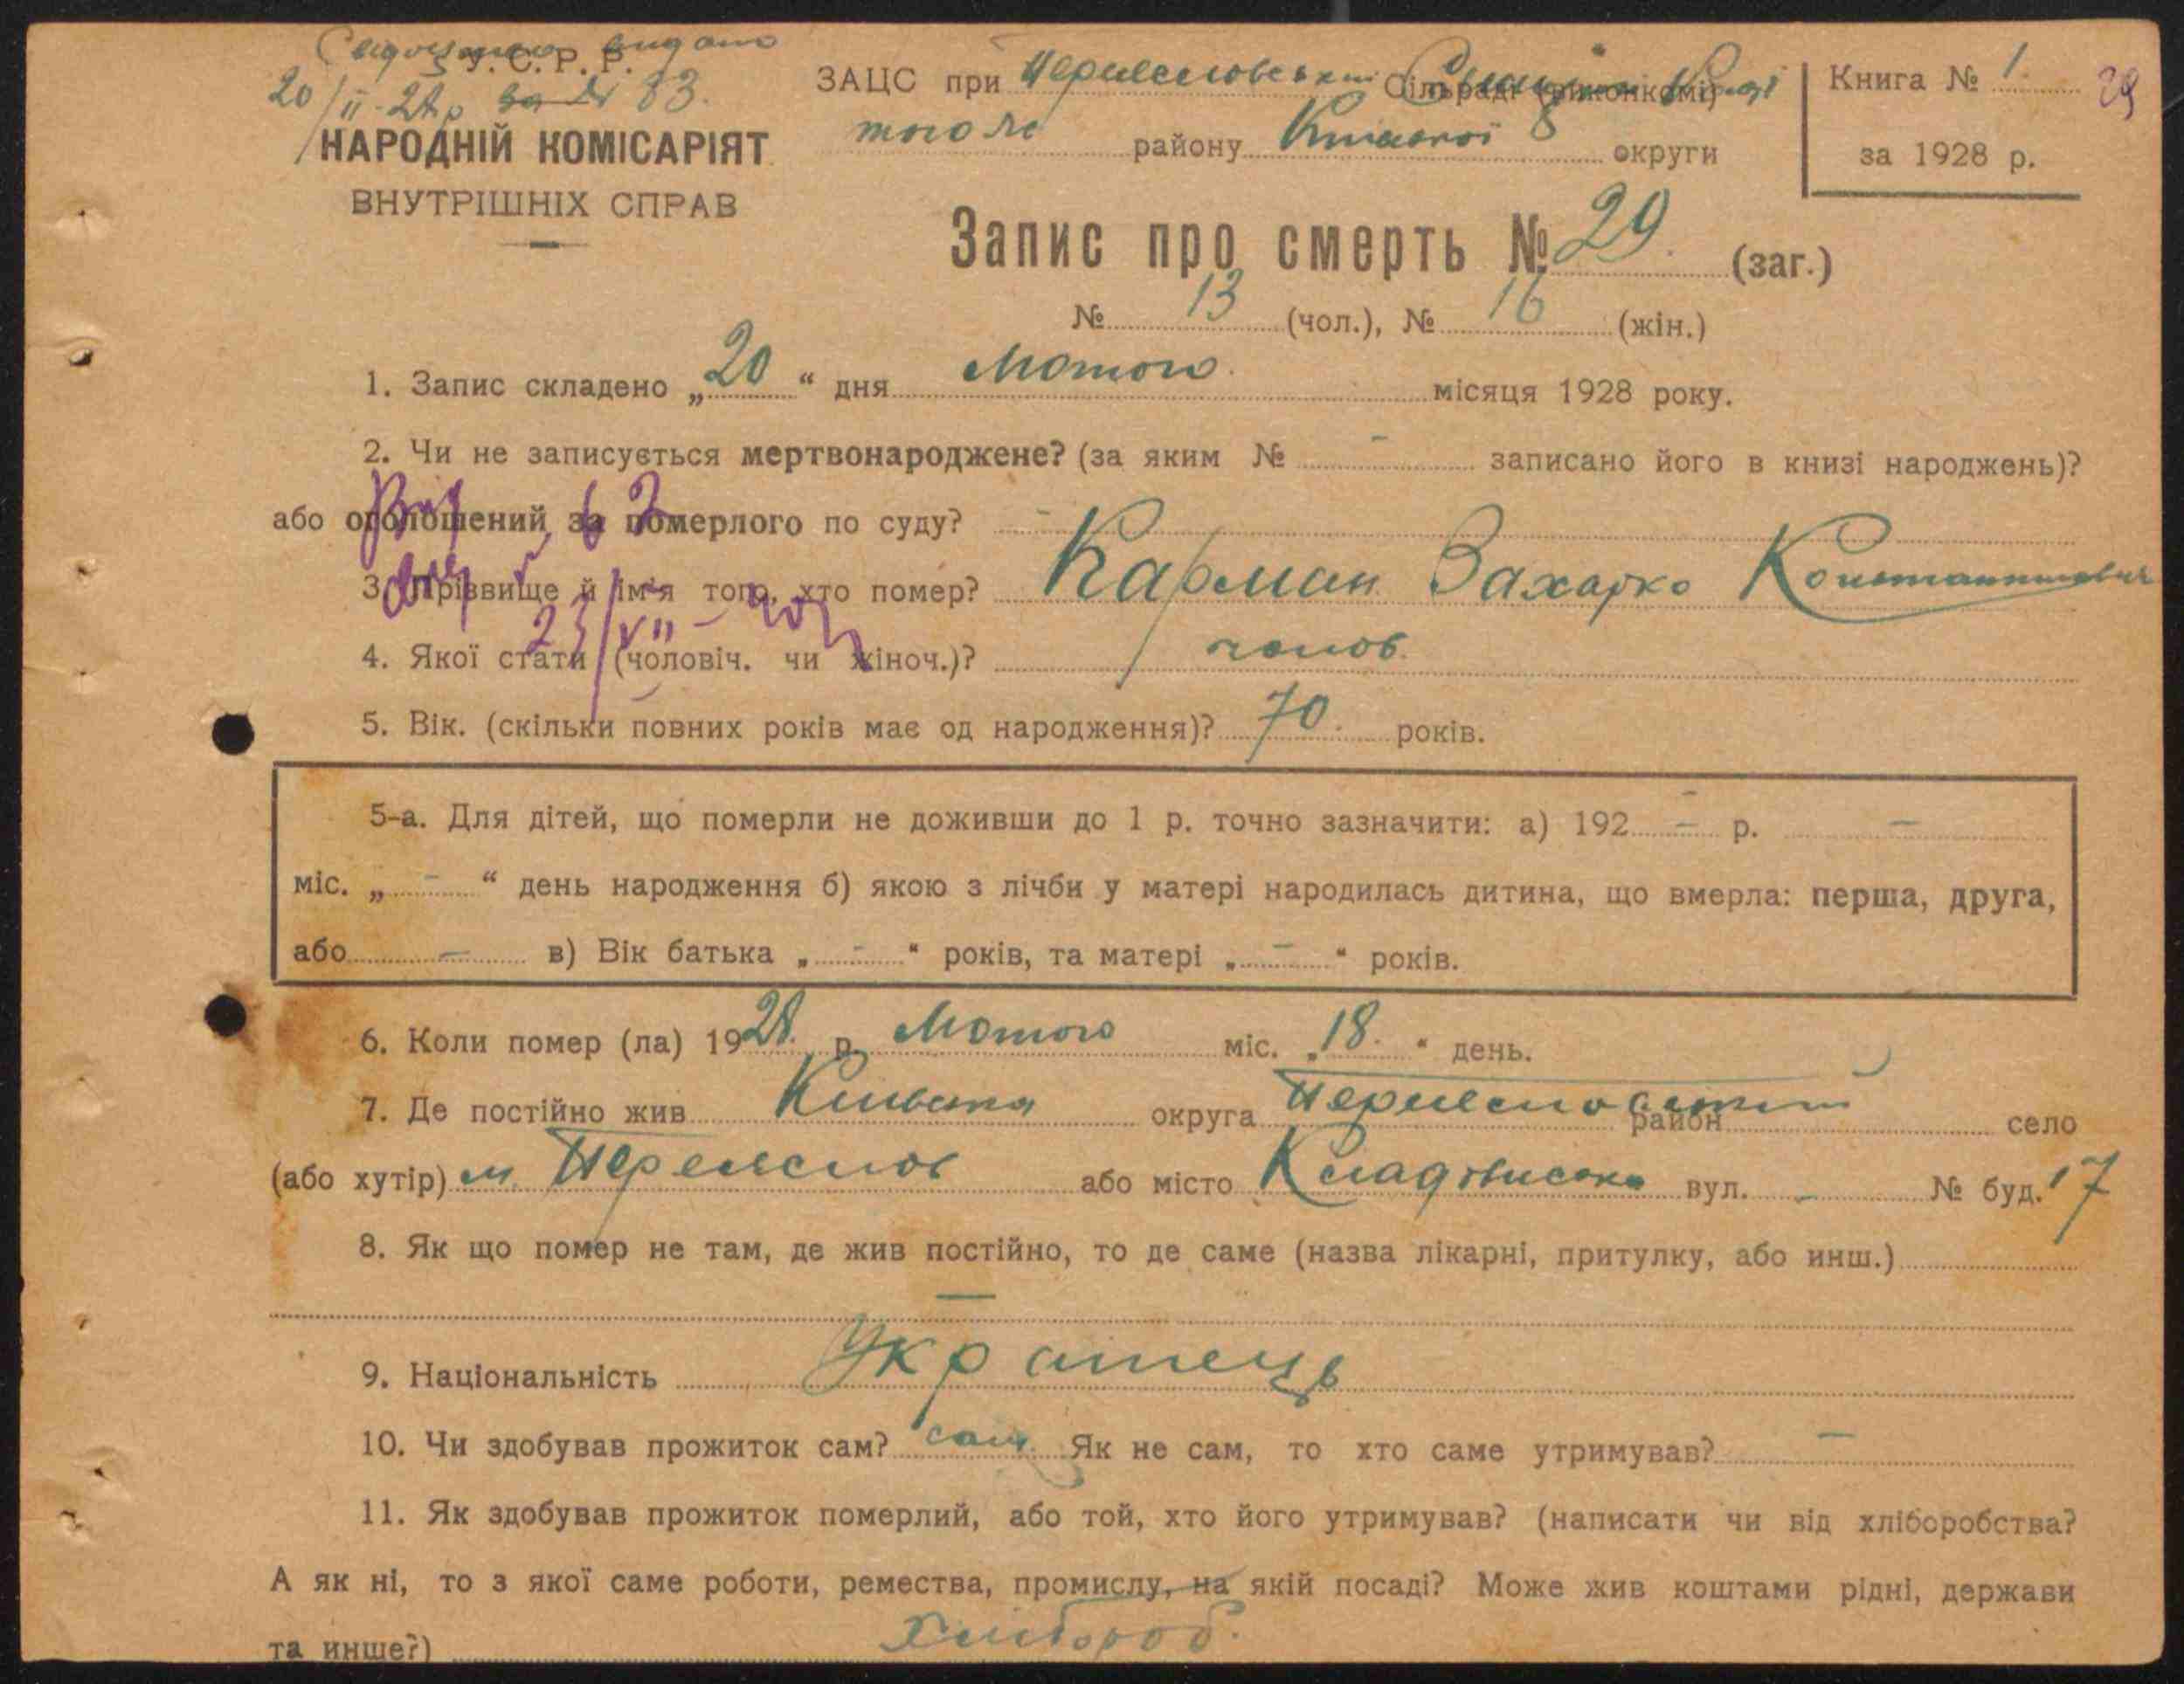 Свідоцтво видано
У. С. Р. Р.
20/II-28 р за № 83.
НАРОДНІЙ КОМІСАРІЯТ
ВНУТРІШНІХ СПРАВ
ЗАЦС при Переяславськім Сільраді (виконкомі)
того ж району Київської округи
Книга № 1
за 1928 р.
29
Запис про смерть № 29. (заг.)
№ 13 (чол.), № 16 (жін.)
1. Запис складено „20“ дня Лютого місяця 1928 року.
2. Чи не записується мертвонароджене? (за яким № - записано його в книзі народжень)?
або оголошений за померлого по суду? -
3. Прізвище й ім'я того, хто помер? Карман Захарко Константинович
4. Якої стати (чоловіч. чи жіноч.)? чолов.
23/VII
5. Вік. (скільки повних років має од народження)? 70. років.
5-а. Для дітей, що померли не доживши до 1 р. точно зазначити: а) 192 - р. -
міс. „ - “ день народження б) якою з лічби у матері народилась дитина, що вмерла: перша, друга,
або - в) Вік батька „ - “ років, та матері „ - “ років.
6. Коли помер (ла) 1928. р. Лютого міс. „18.“ день.
7. Де постійно жив Київська округа Переяславський район село
(або хутір) м. Переяслов або місто Кладовиська вул. - № буд. 17
8. Як що помер не там, де жив постійно, то де саме (назва лікарні, притулку, або инш.)
—
9. Національність Українець
10. Чи здобував прожиток сам? сам. Як не сам, то хто саме утримував? —
11. Як здобував прожиток померлий, або той, хто його утримував? (написати чи від хліборобства?
А як ні, то з якої саме роботи, ремества, промислу, на якій посаді? Може жив коштами рідні, держави
та инше?) Хлібороб.